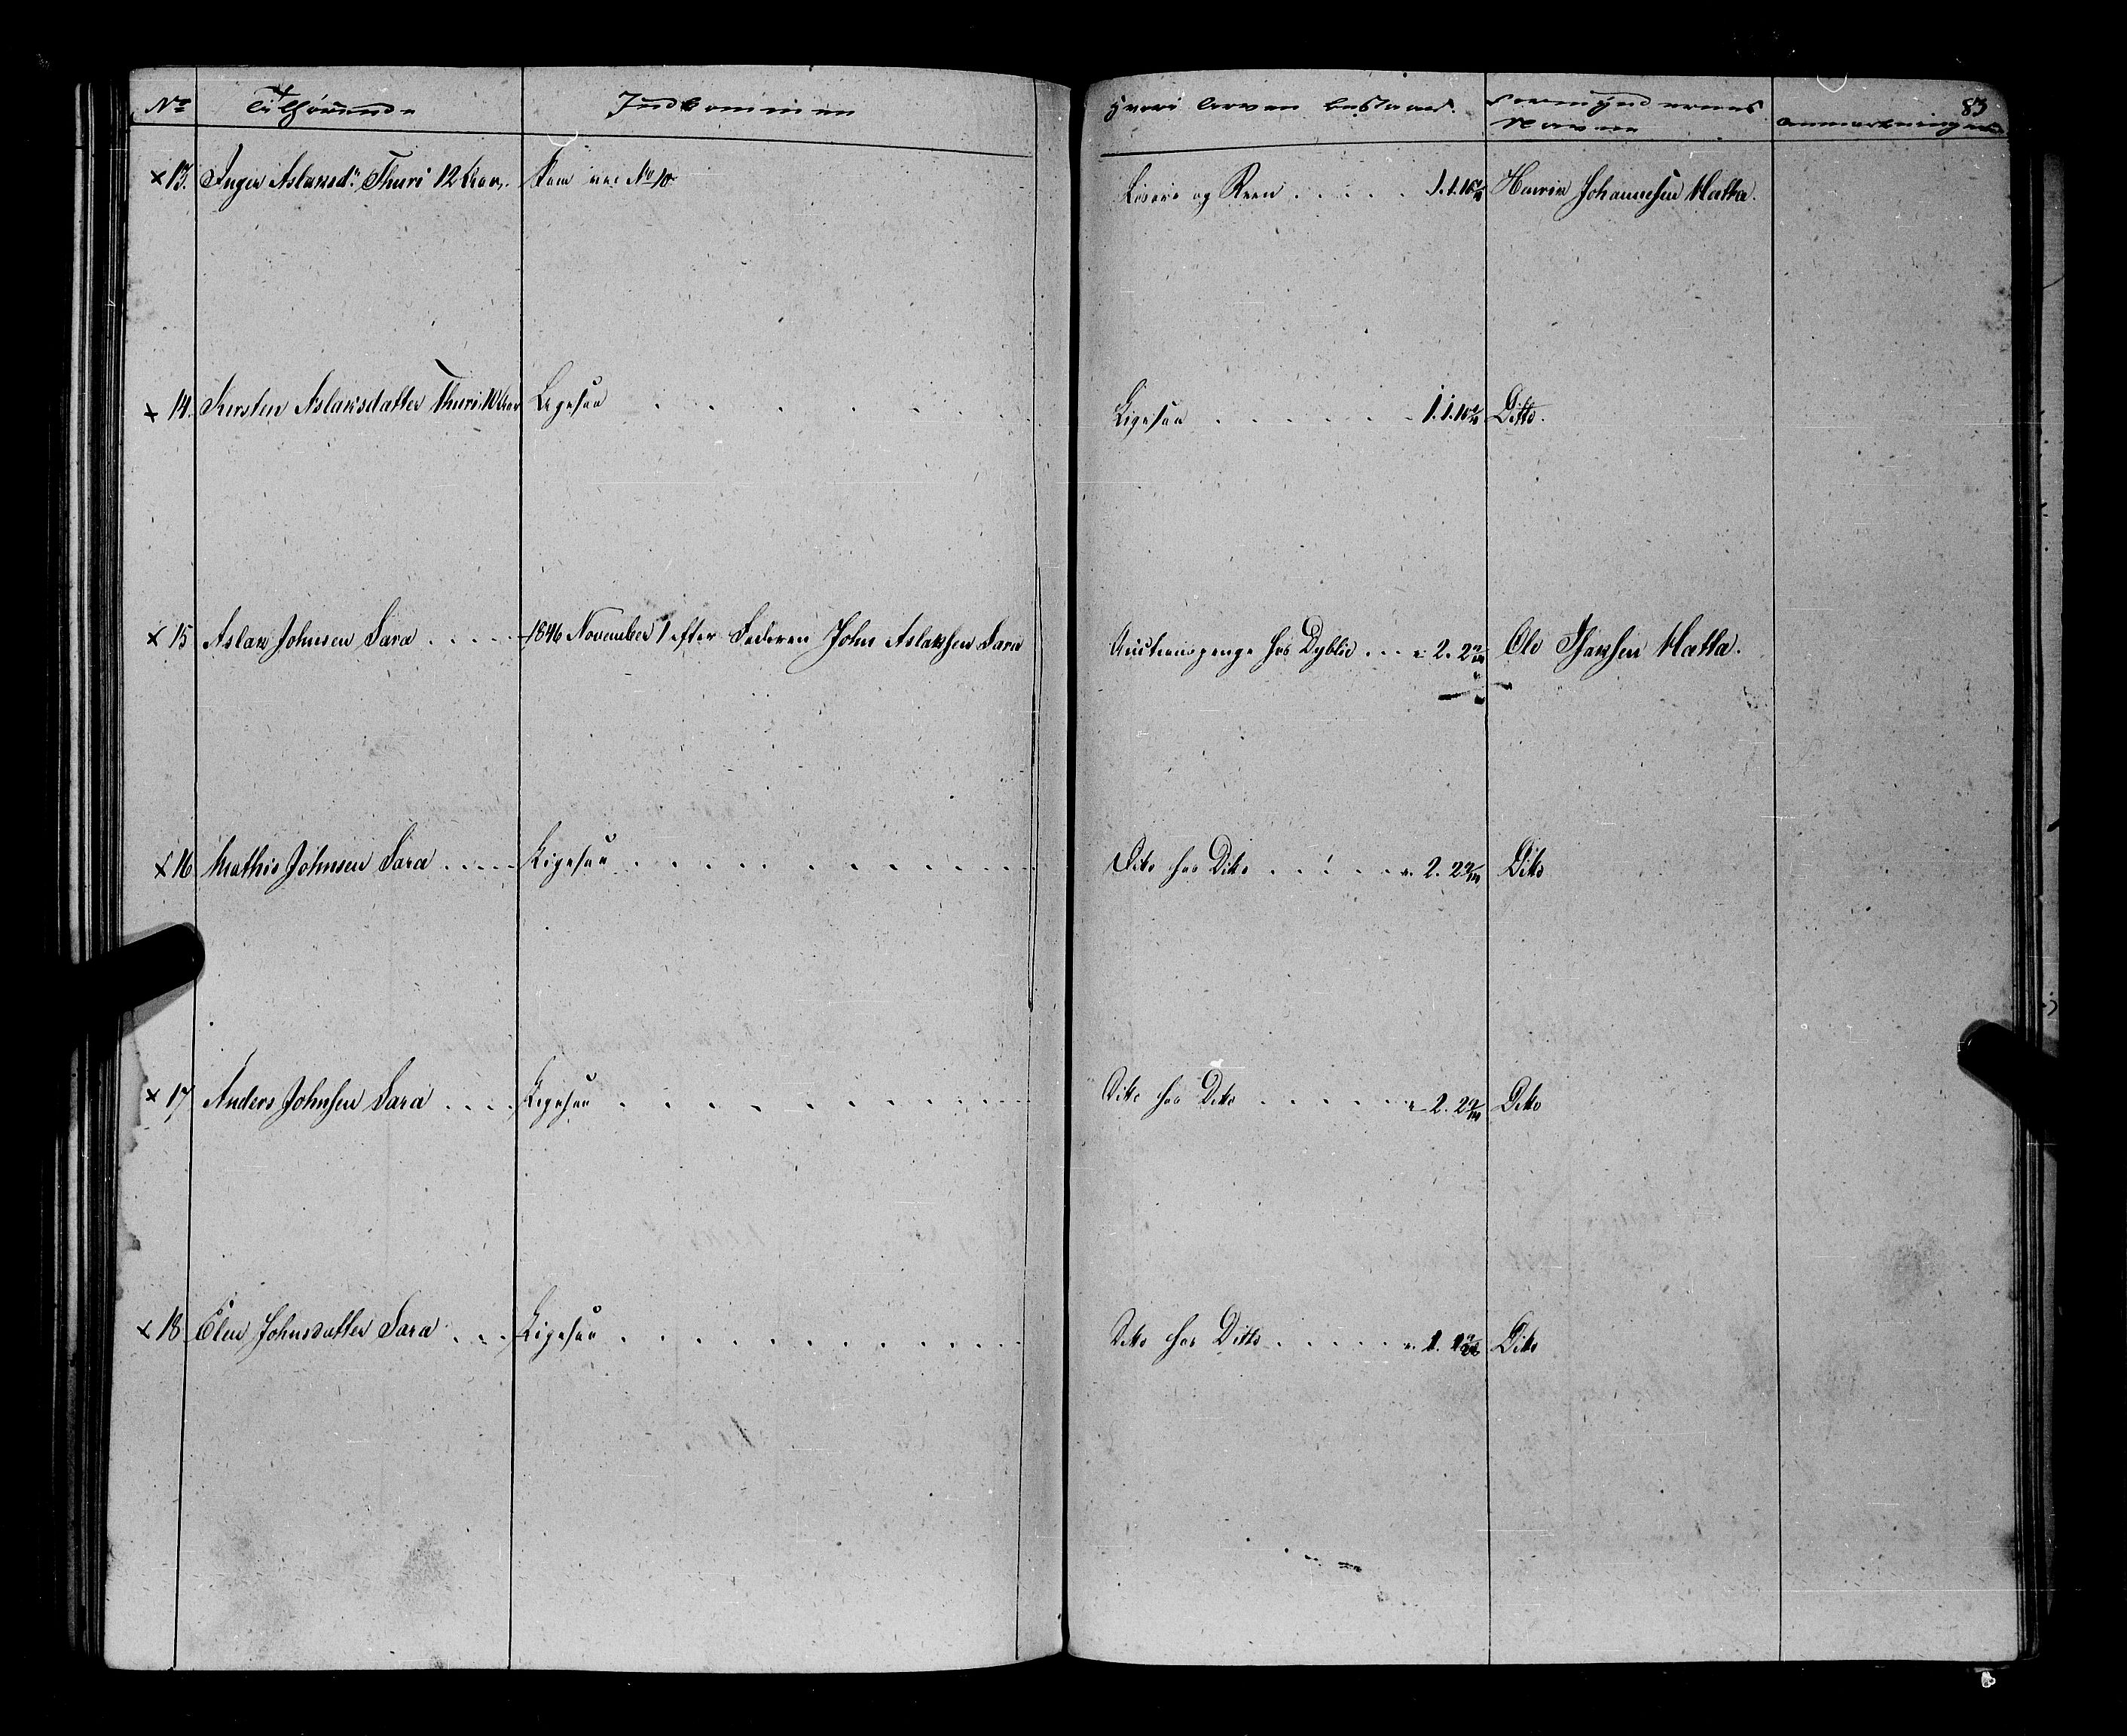 83
No Tilhørende Indkommen Hvori Arven bestaaer. Formyndernes
Navne Anmærkninger
× 13. Inger Aslaksdr Thuri 12 Aar. Som ved No 10 Løsøre og Reen . . . . . 1.1.10 Henrik Johannesen Hætta.
× 14. Kirsten Aslaksdatter Thuri 10 Aar Ligesaa . . . . . . . Ligesaa . . . . . . . 1.1.10 Ditto.
× 15 Aslak Johnsen Sara . . . . . 1846 November 1 efter Faderen John Aslaksen Sara Auctionspenge hos Dyblie . . . " 2. 22 Ole Isaksen Hætta.
× 16 Mathis Johnsen Sara . . . . Ligesaa . . . . . . . . . . Dito hos Dito . . . . . " 2. 22 Dito
× 17 Anders Johnsen Sara . . . . Ligesaa . . . . . . . . . . Dito hos Dito . . . . . " 2. 22 Dito
× 18 Elen Johnsdatter Sara . . . Ligesaa . . . . . . . . . . Dito hos Ditto . . . . . " 1. Dito